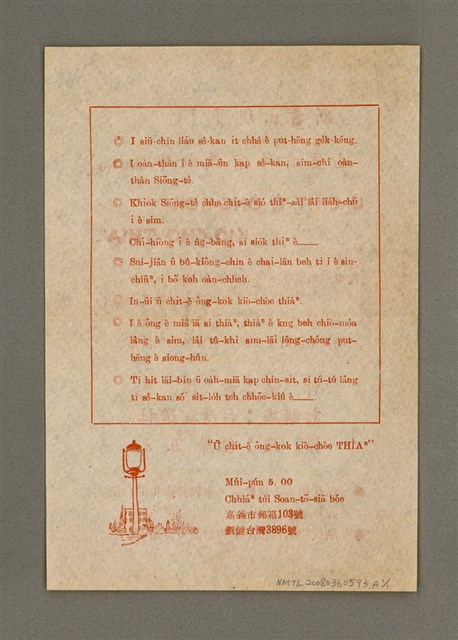 ◎ I siū-chīn liáu sè-kan it-chhè ê put-hēng ge̍k-kéng.
◎ I oàn-thàn i ê miā-ūn kap sè-kan, sīm-chì oàn-
thàn Siōng-tè.
◎ Khiok Siōng-tè chhe chi̍t-ê sió thiⁿ-sài lâi lia̍h-chū
i ê sim.
Chí-hiòng i ê ǹg-bāng, sī sio̍k thiⁿ ê
◎ Sui-jiân ū bû-kiông-chīn ê chai-lān beh ti i ê sin-
chiūⁿ, i bô koh oàn-chheh.
◎ In-ūi ū chi̍t-ê ông-kok kiò-chòe thiàⁿ.
◎ I ê ông ê miâ iā sī thiàⁿ, thiàⁿ ê kng beh chiò-móa
lâng ê sim, lâi tû-khì sim-lāi lóng-chóng put-
hēng ê siong-hûn.
◎ Tī hit lāi-bīn ū oa̍h-miā kap chin-si̍t, sī tú-tú lâng
tī sè-kan só͘ sit-lo̍h teh chhōe-kiû ê
"Ū chi̍t-ê ông-kok kiò-chòe THIÀⁿ"
Múi-pún 5.00
Chhiáⁿ tùi Soan-tō-siā bóe
嘉義市郵箱103號
劃儲台灣3896號
NMTL20080360593.A 1/1